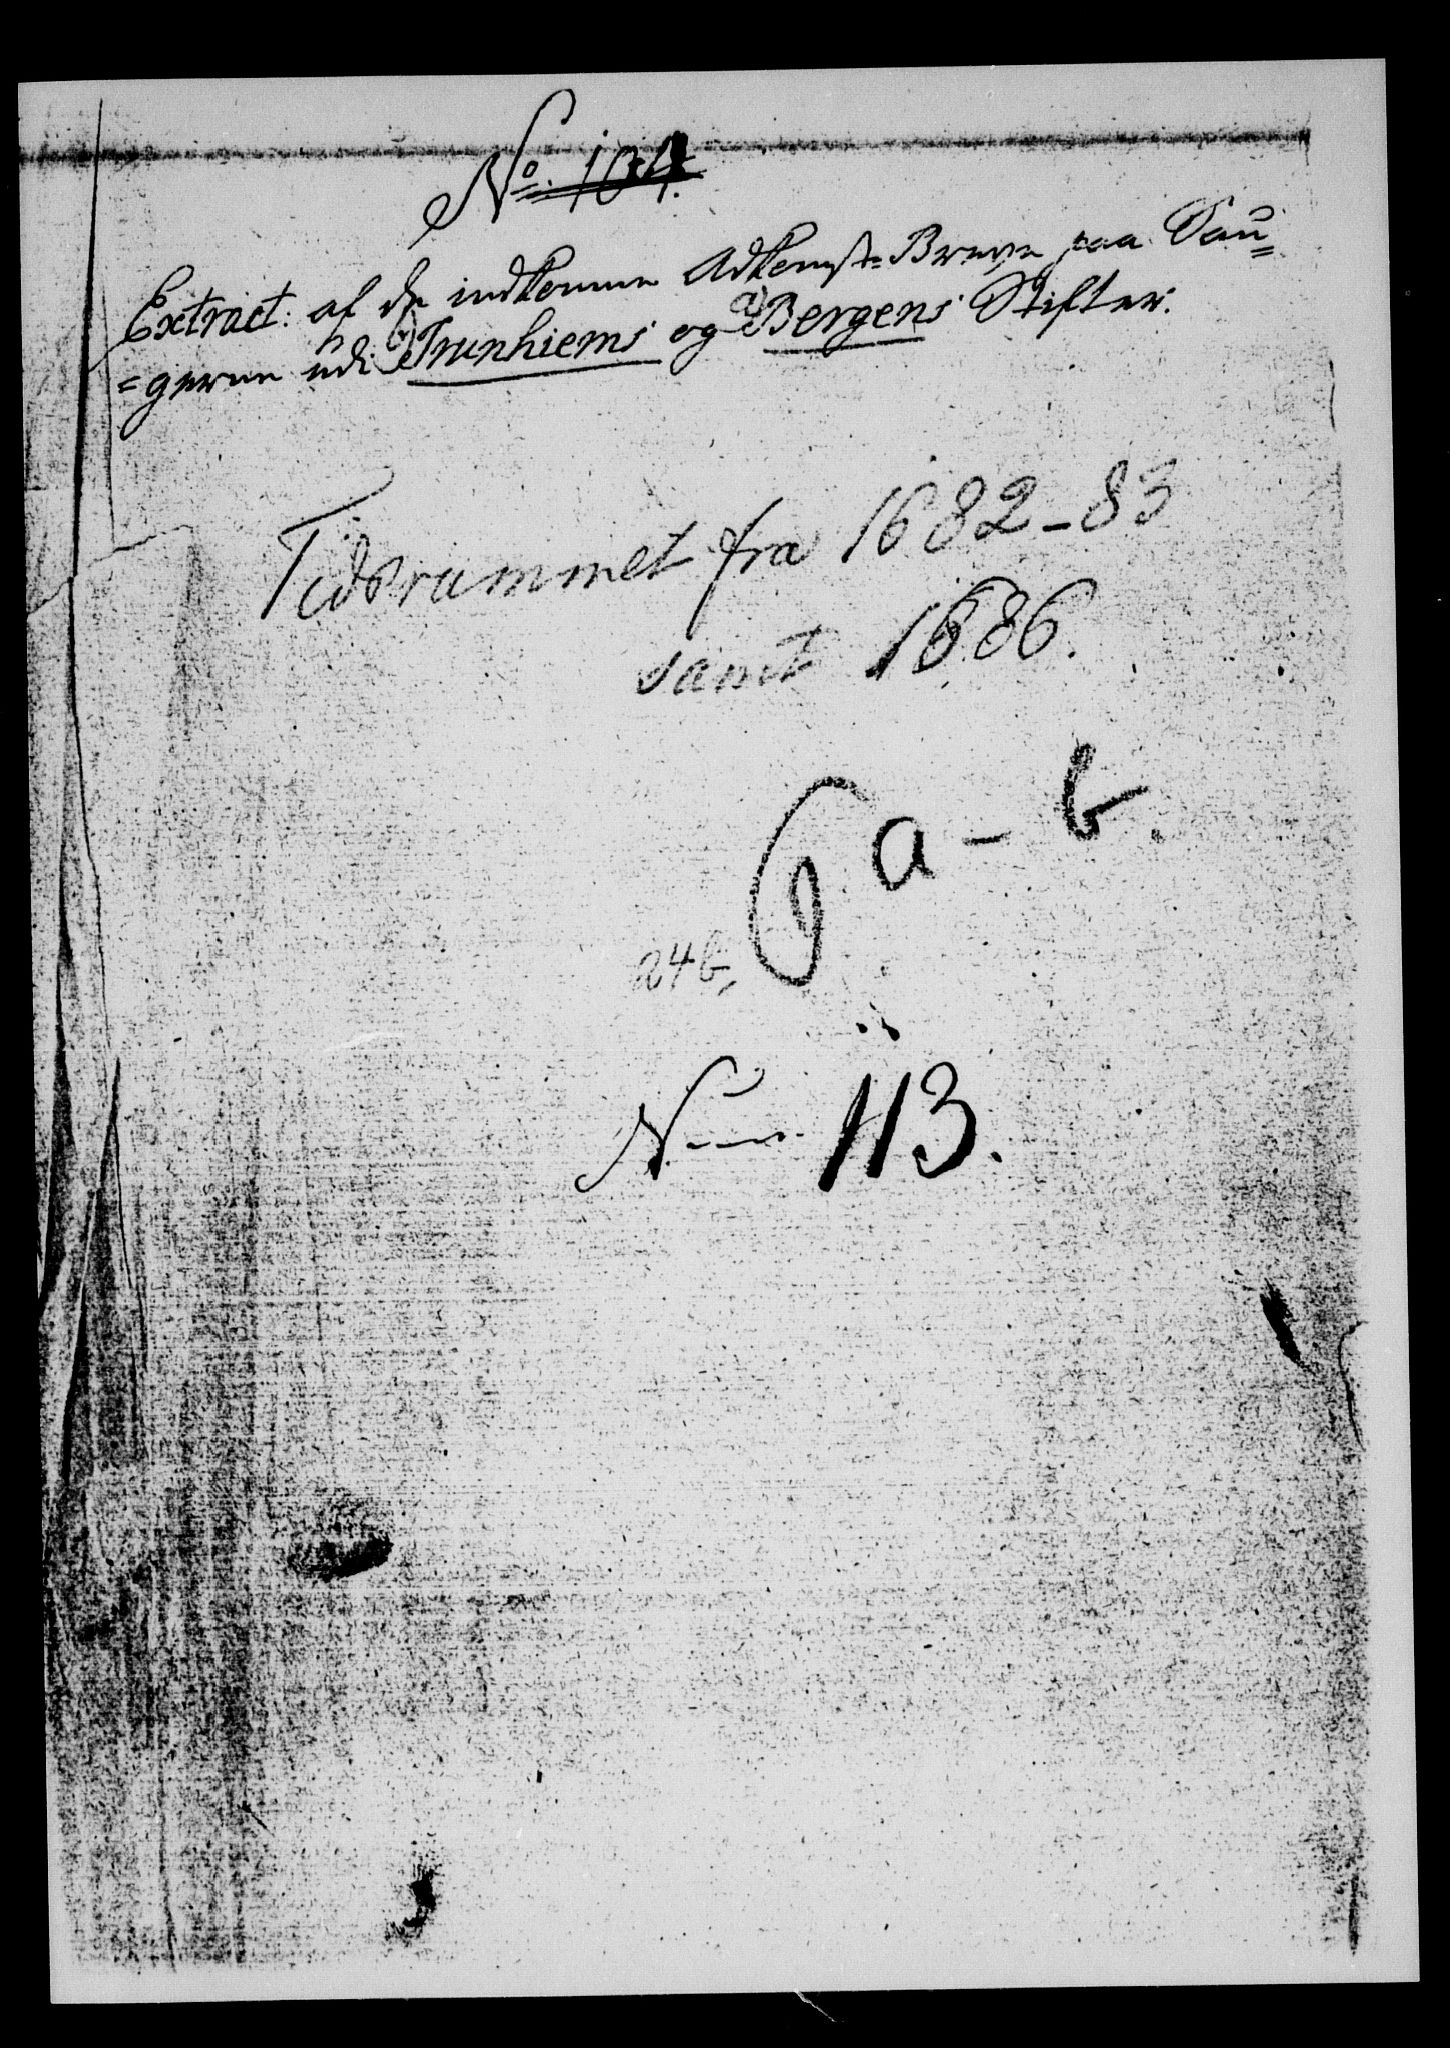 No. 104.
Extract: af de indkomne Adkomst-Breve paa Sau=
=gerne udi b) Trunhiems og a) Bergens Stifter.
Tidsrummet fra 1682-83
samt 1686.
6 a - b.
24 b,
N 113.